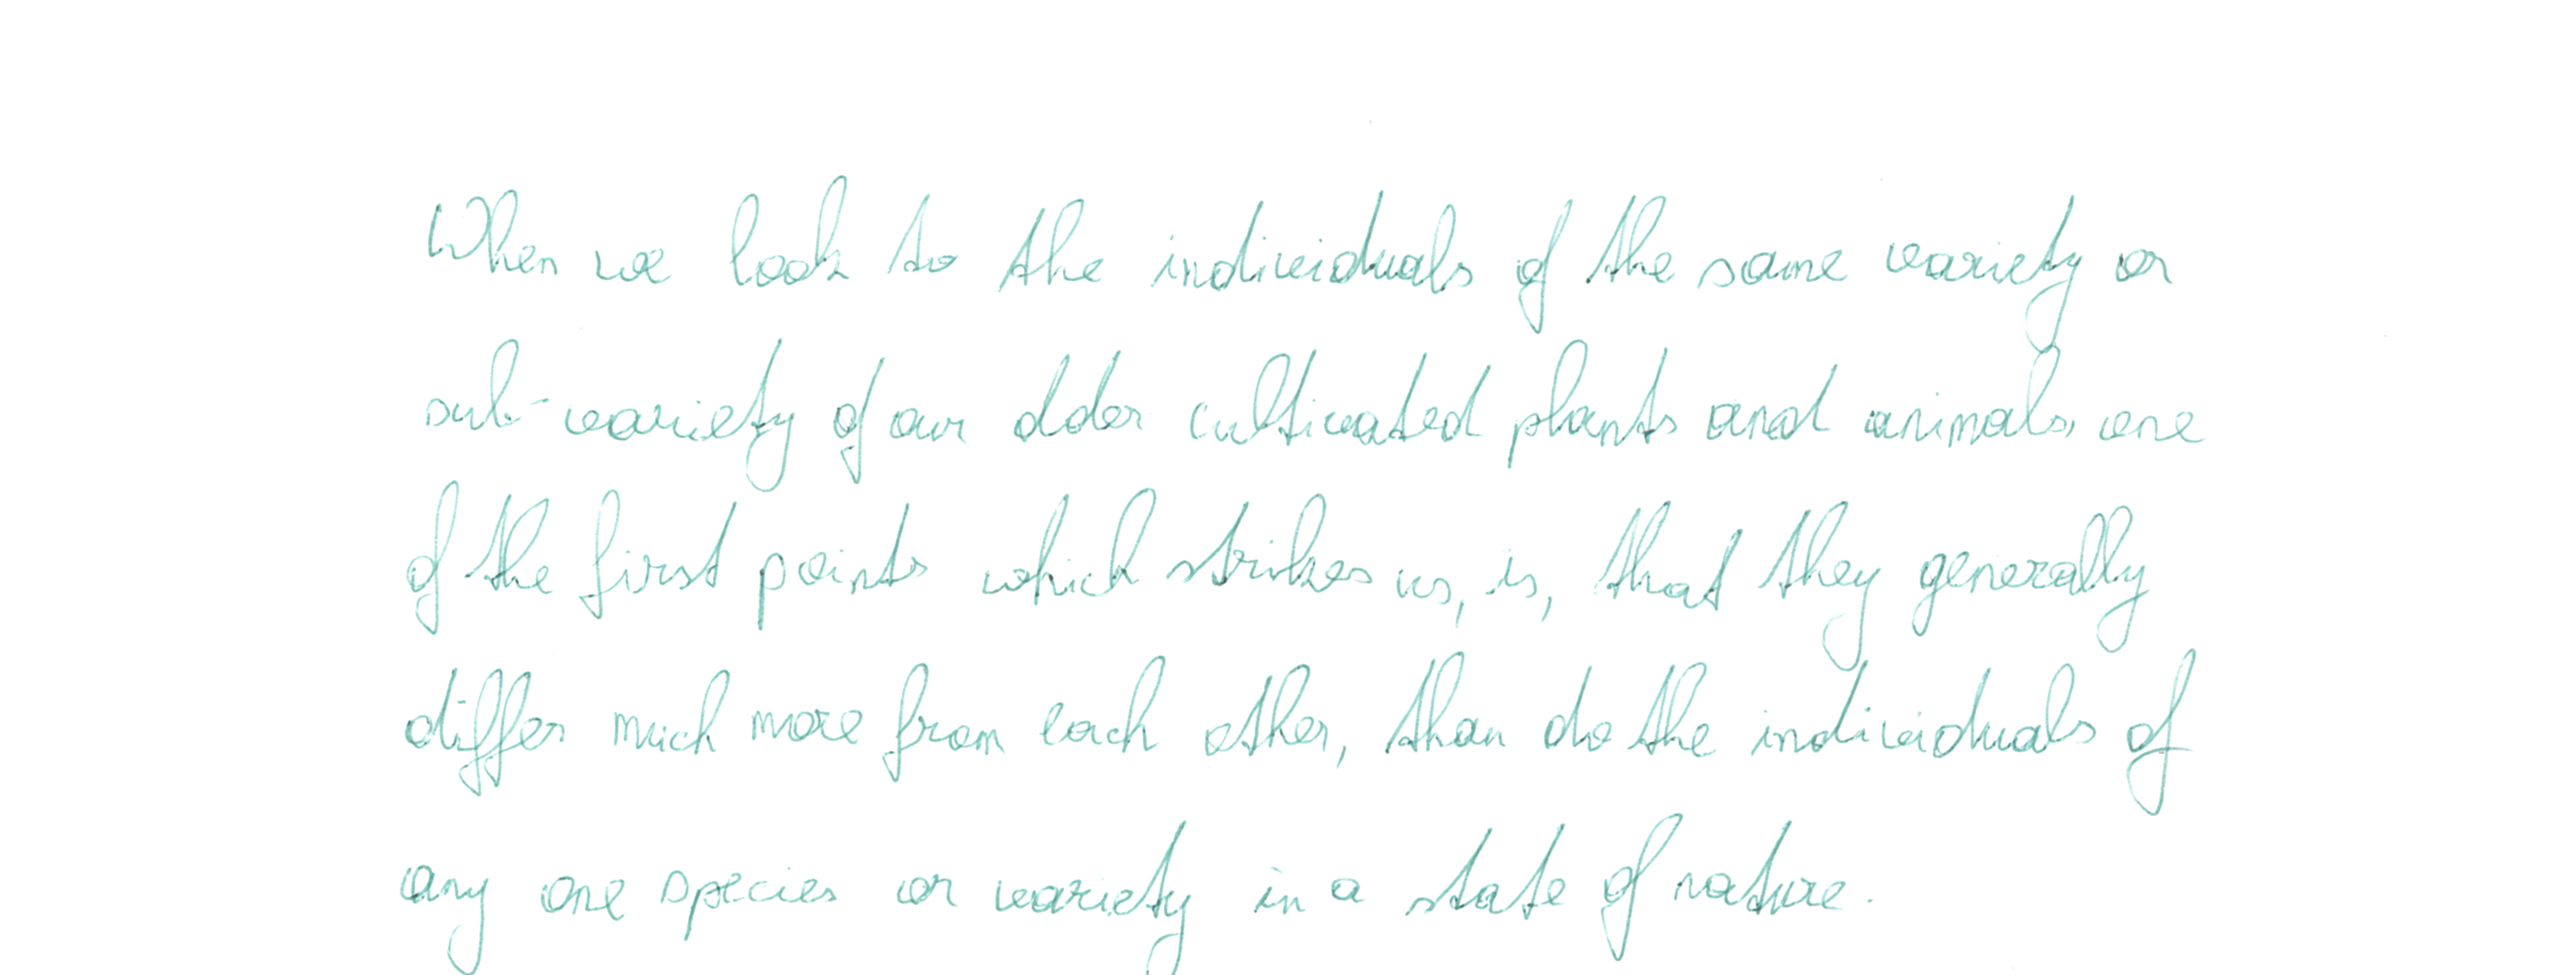 When we look to the individuals of the same variety or
sub-variety of our older cultivated plants and animals, one
of the first points which strikes us, is, that they generally
differ much more from each other, than do the individuals of
any one species or variety in a state of nature.